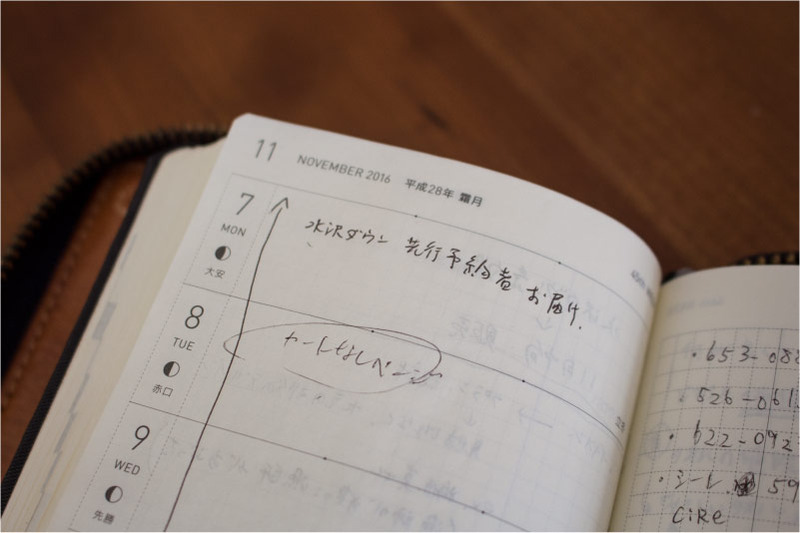 11 NOVEMBER 2016 平成28年 霜月
7
MON
大安
水沢ダウン 先行予約者 お届け.
8
TUE
赤口
カートなしページ
9
WED
先勝
・653-082
526-061
・622-092
・シール 59
CiRe